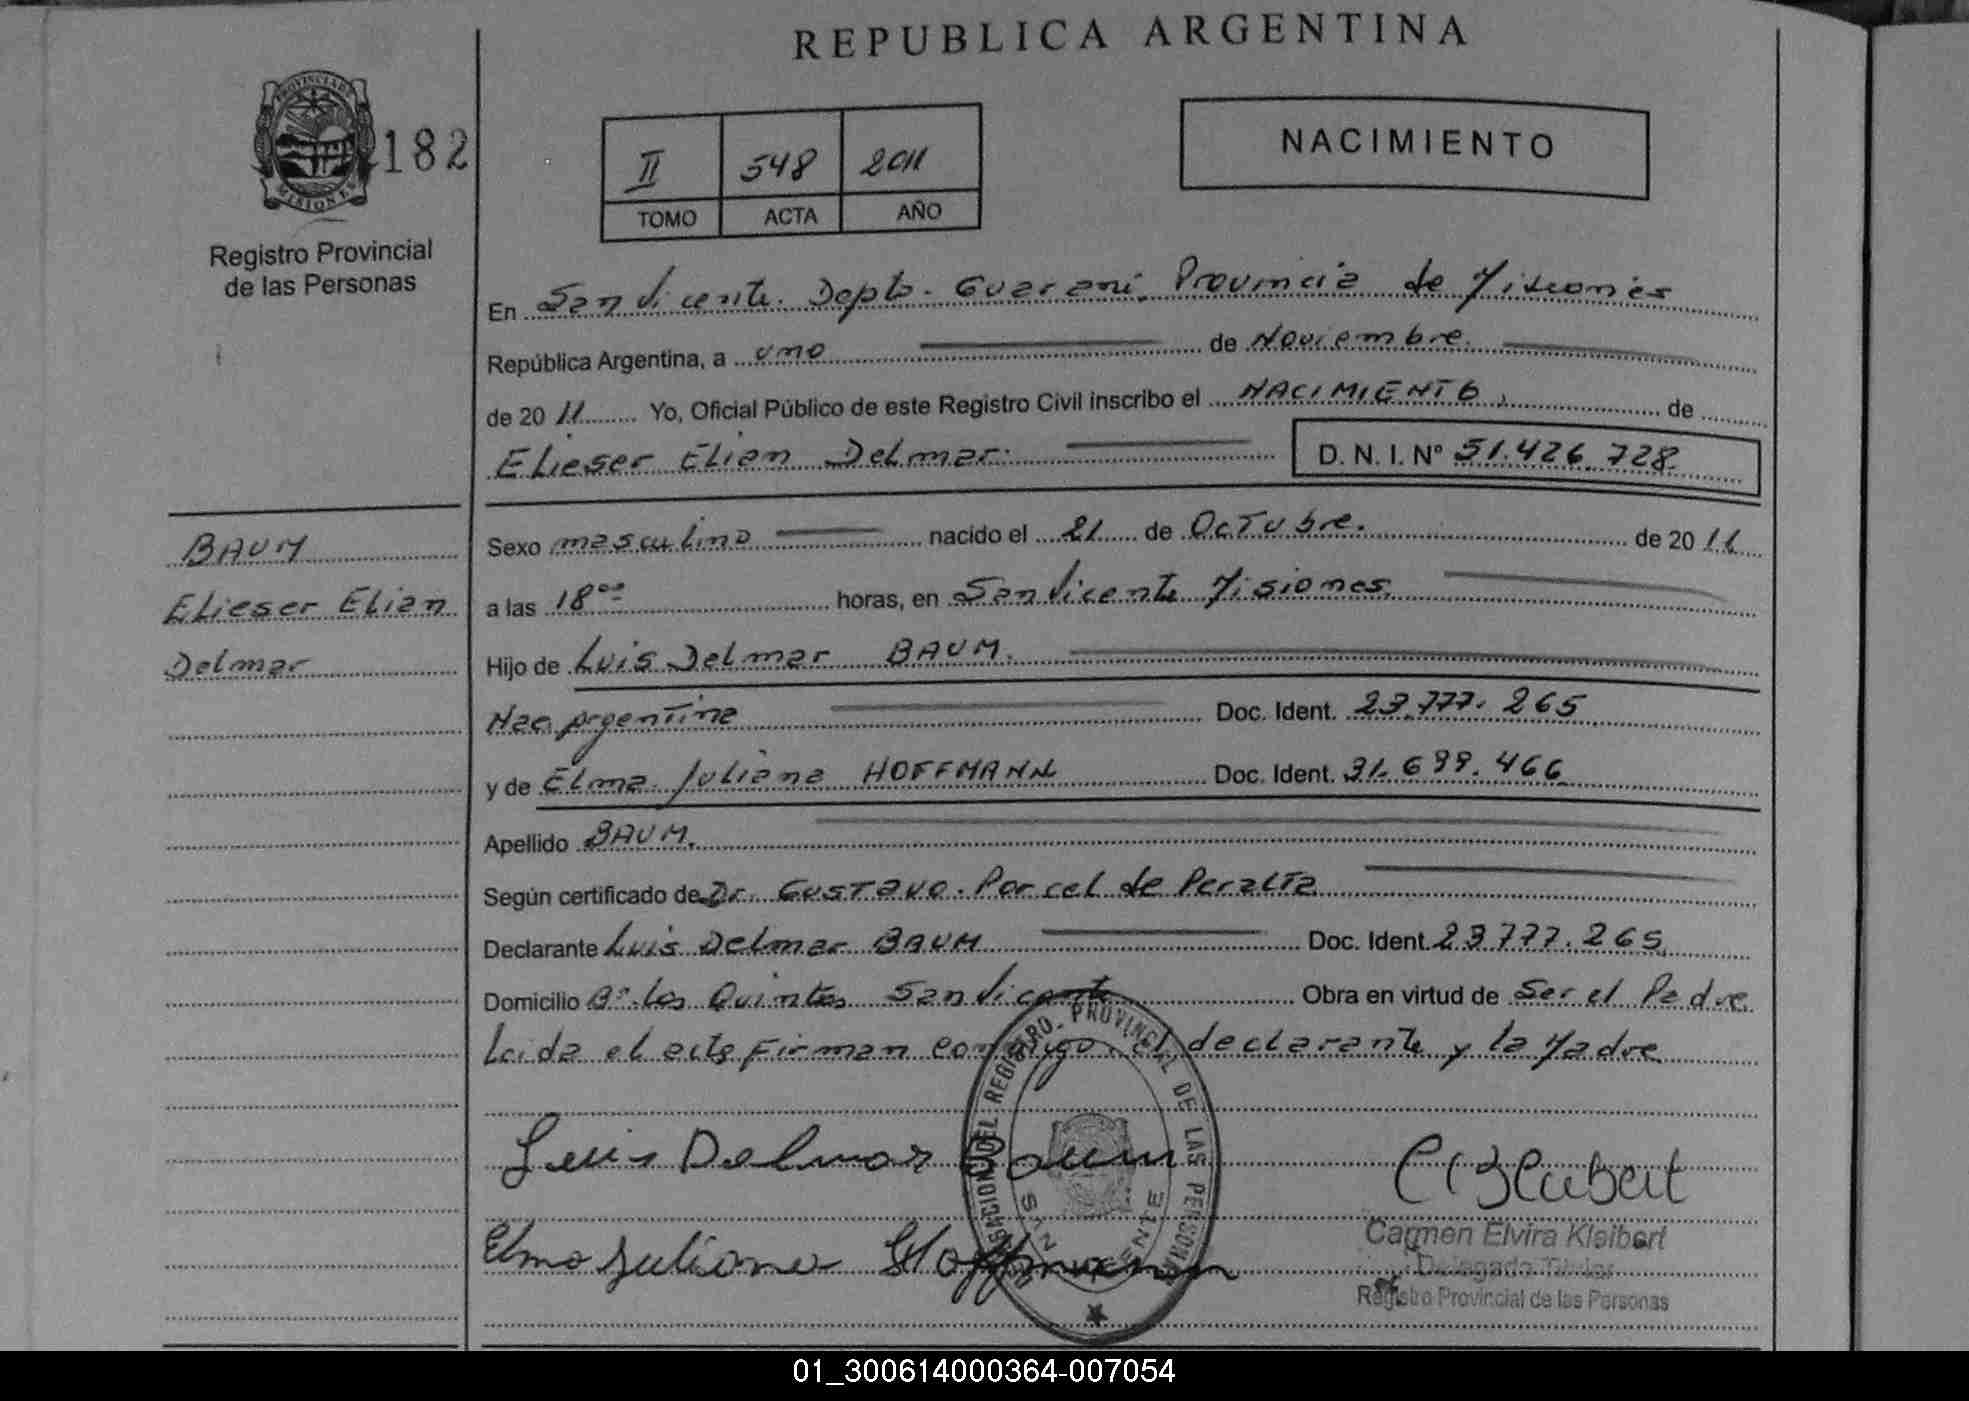 REPUBLICA ARGENTINA
PROVINCIA DE MISIONES
182
Registro Provincial
de las Personas
II 548 2011
TOMO ACTA AÑO
NACIMIENTO
En San Vicente. Depto. Guarani. Provincia de Misiones
República Argentina, a uno de Noviembre.
de 20 11 Yo, Oficial Público de este Registro Civil inscribo el NACIMIENTO, de
Elieser Elian Delmar. D. N. I. Nº 51.426.728
BAUM
Elieser Elian
Delmar
Sexo masculino nacido el 21 de Octubre. de 20 11
a las 18ºº horas, en San Vicente Misiones
Hijo de Luis Delmar BAUM.
Nac. Argentina Doc. Ident. 23.777.265
y de Elma Juliana HOFFMANN Doc. Ident. 31.699.466
Apellido BAUM.
Según certificado de Dr. Gustavo Porcel de Peralta
Declarante Luis Delmar BAUM Doc. Ident. 23.777.265
Domicilio Bº. Las Quintas San Vicente Obra en virtud de Ser el Padre
Leida el acta Firman conmigo el declarante y la Madre
Luis Delmar Baum
Elma Juliana Hoffmann
DELEGACION DEL REGISTRO PROVINCIAL DE LAS PERSONAS
SAN VICENTE
Carmen Elvira Kleibert
Delegado Titular
Registro Provincial de las Personas
01_300614000364-007054